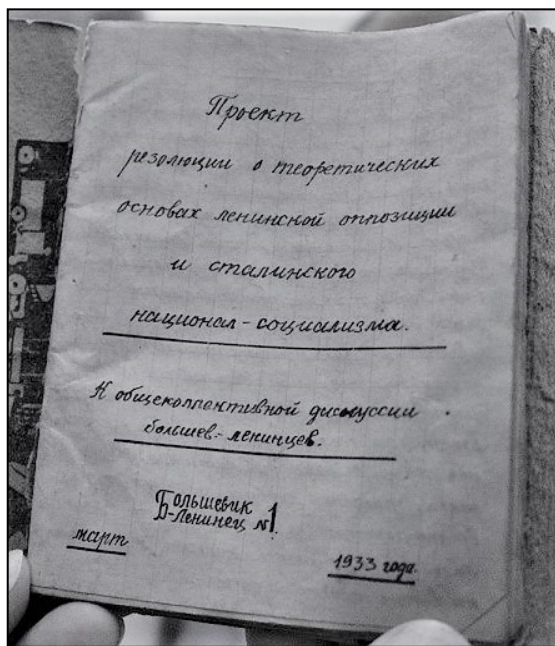 Проект
резолюции о теоретических
основах ленинской оппозиции
и сталинского
национал-социализма.
К общеколлективной дискуссии
большев.-ленинцев.
Большевик
-Ленинец №1.
март
1933 года.